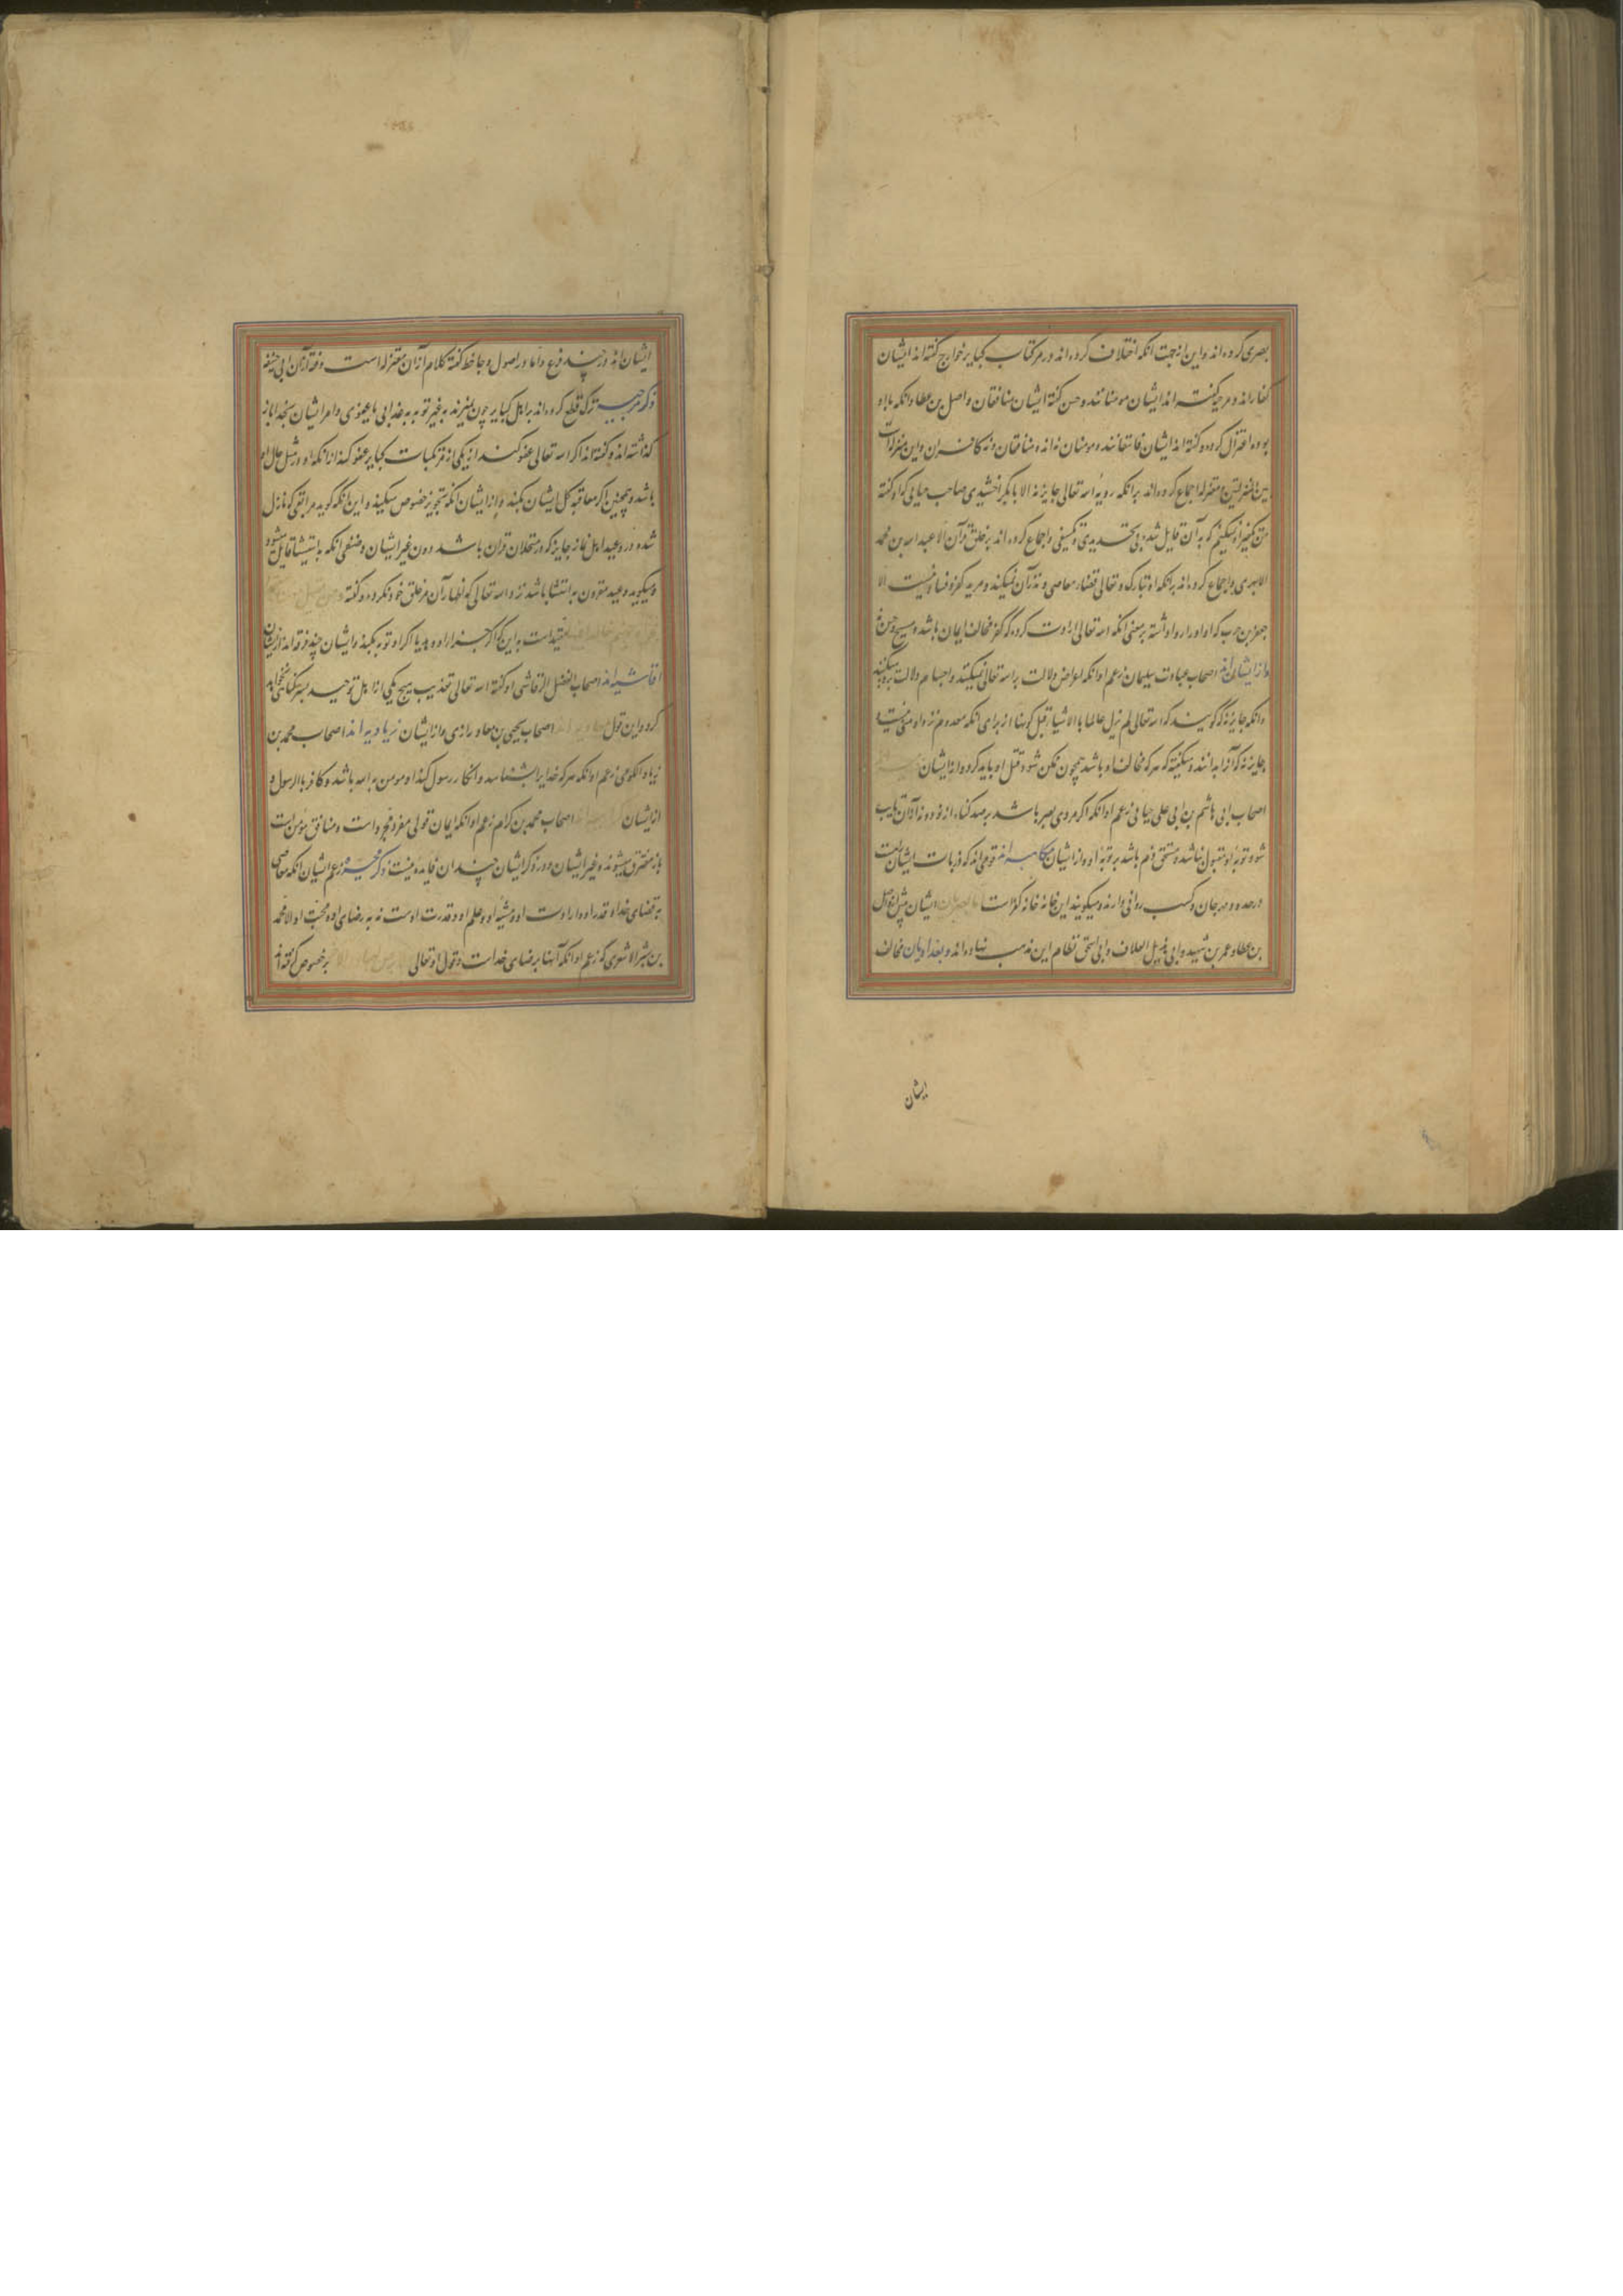 بصری کرده اند و این از جهت انکه اختلاف کرده اند در مرتکب کبایر خوارج گفته اند ایشان
کفارند و مرجیه گفته اند ایشان مومنانند و حسن گفته ایشان منافقان و اصل بن عطا و انکه با او
بوده اعتزال کرده و گفته اند ایشان فاسقانند و مومنان نه اند و منافقان و نه کافران و این منزلت
بین المنزلتین و معتزله اجماع کرده اند برانکه رویة الله تعالی جایز نه الا بابکر اخشیدی صاحب جبایی که او گفته
من تکفیر او نمیکنم که به آن قایل شد بی تحدیدی و تکییفی و اجماع کرده اند بر خلق قرآن الا عبد الله بن محمد
الابهری و اجماع کرده اند برانکه الله تبارک و تعالی قضاء معاصی و تقدیر آن نمیکند و مرید کفر و فساد نیست الا
جعفر بن حرب که او اراده روا داشته بر معنی انکه الله تعالی ارادت کرده که کفر مخالف ایمان باشد و قبیح و حسن نه
و از ایشان اند اصحاب عباد بن سلیمان زعم او انکه اعراض دلالت بر الله تعالی نمیکنند و اجسام دلالت برو میکنند
و انکه جایز نه که گویند که الله تعالی لم یزل عالما بالاشیاء قبل کونها از برای انکه معدوم نزد او شی نیست و
جایز نه که آنرا بدانند و میگفته که هر که مخالف او باشد چون ممکن شود قتل او باید کرد و از ایشان
اصحاب ابی هاشم بن ابی علی جبایی زعم او انکه اگر مردی مصر باشد بر صد گناه از نود و نه الا آن تایب
شود توبه او مقبول نباشد و مستحق ذم باشد بر توبه او و از ایشان مکاسبه اند قومی اند که
در حده و مرجان و کسب روا نمی دارند و میگویند این خانه خانه کفر است و بصریان ایشان مثل واصل
بن عطا و عمر بن عبید و ابی هذیل العلاف و ابی اسحق نظام این مذهب نهاده اند و بغدادیان مخالف
ایشان
ایشان اند در چند فرع و اما در اصول و جاحظ گفته کلام از ان معتزله است و فقه از ان ابی حنیفه
ذکر مرجیه ترک قطع کرده اند بر اهل کبایر چون بمیرند به غیر توبه به عذابی یا عفوی و امر ایشان بخدا باز
گذاشته اند و گفته اند اگر الله تعالی عفو کند از یکی از مرتکبات کبایر عفو کند از انکه او در مثل حال او
باشد و همچنین اگر معاقبه کل ایشان بکند و از ایشان انکه تجویز خصوص میکنند و این بانکه گوید مراتبی که نازل
شده در وعید اهل نماز جایز که در مستحلان قران باشد دون غیر ایشان و صنفی انکه باستثنا قایل میشود
و میگوید وعید مقرون به استثنا باشد نزد الله تعالی که اظهار آن بر خلق خود نکرده و گفته
مقید است به این که اگر جزا اراده بدیا اگر او توبه نکند و ایشان چند فرقه اند از ایشان
رقاشیه اند اصحاب الفضل الرقاشی او گفته الله تعالی تعذیب هیچ یکی از اهل توحید بسر گناهی نخواهد
کرد و این قول اصحاب یحیی بن معاذ رازی و از ایشان زیادیه اند اصحاب محمد بن
زیاد الکوفی زعم او انکه هر که خدایرا بشناسد و انکار رسول کند او مومن به الله باشد و کافر بالرسول و
از ایشان اصحاب محمد بن کرام زعم او انکه ایمان قولی مفرد مجرد است و منافق مومن است
باز متفرق میشوند و غیر ایشان و در ذکر ایشان چندان فایده نیست ذکر مجبره زعم ایشان انکه معاصی
به قضای خدا و قدر او و ارادت او و مشیة او و علم او و قدرت اوست نه به رضای او و محبت او الا محمد
بن بشر الاشعری که زعم او انکه آنها به رضای خداست و قول و تعالی بر خصوص گفته اند